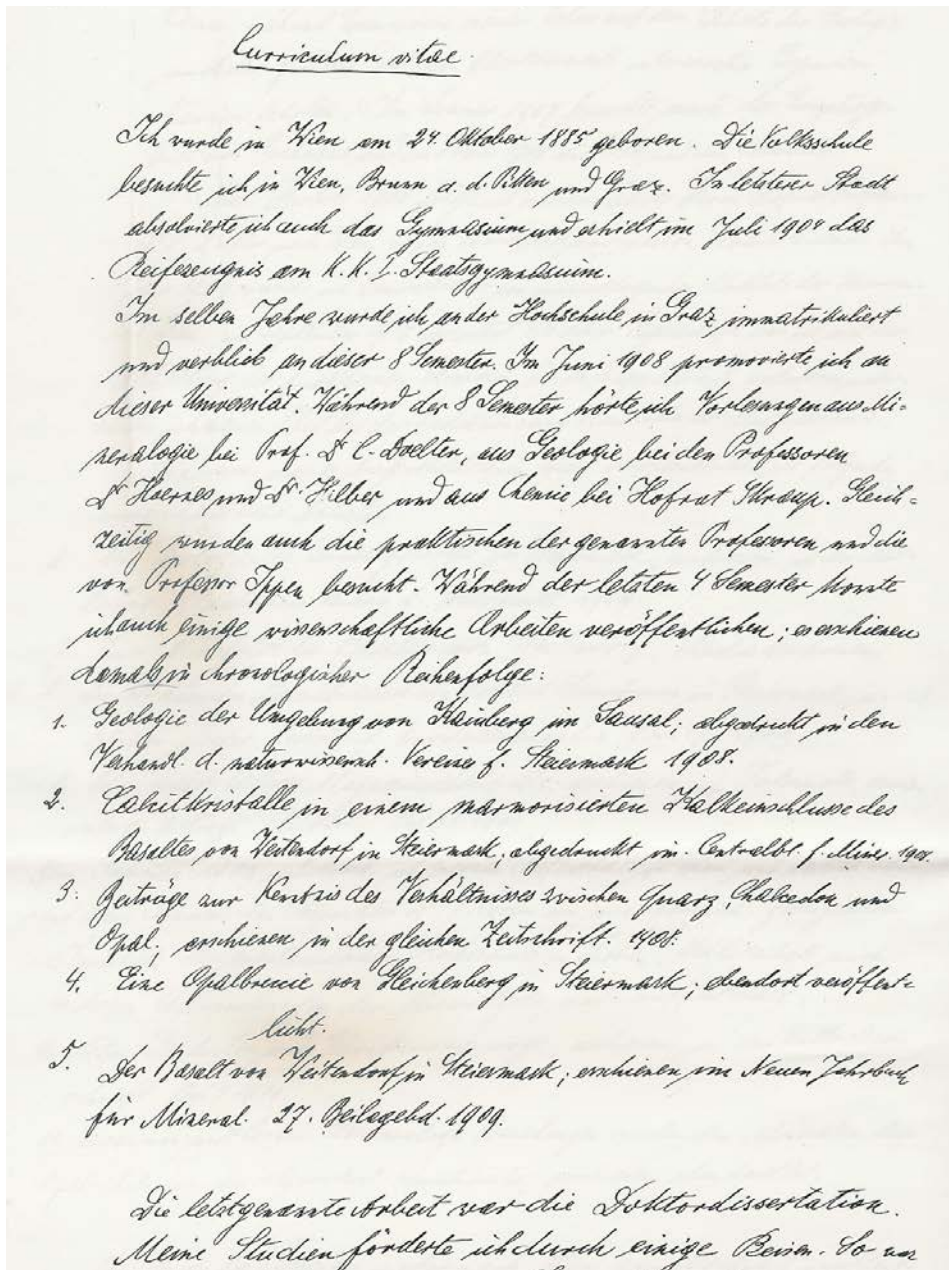 Curriculum vitae.
Ich wurde in Wien am 24. Oktober 1885 geboren. Die Volksschule
besuchte ich in Wien, Brunn a. d. Pitten und Graz. In letzterer Stadt
absolvierte ich auch das Gymnasium und erhielt im Juli 1904 das
Reifezeugnis am K. K. I. Staatsgymnasium.
Im selben Jahre wurde ich an der Hochschule in Graz immatrikuliert
und verblieb an dieser 8 Semester. Im Juni 1908 promovierte ich an
dieser Universität. Während der 8 Semester hörte ich Vorlesungen aus Mi-
neralogie bei Prof. Dr C. Doelter, aus Geologie bei den Professoren
Dr Hoernes und Dr. Hilber und aus Chemie bei Hofrat Skraup. Gleich-
zeitig wurden auch die praktischen der genannten Professoren und die
von Professor Ippen besucht. Während der letzten 4 Semester konnte
ich auch einige wissenschaftliche Arbeiten veröffentlichen; es erschienen
damals in chronologischer Reihenfolge:
1. Geologie der Umgebung von Kainberg im Sausal; abgedruckt in den
Verhandl. d. naturwissensch. Vereines f. Steiermark 1908.
2. Calcitkristalle in einem marmorisierten Kalkeinschlusse des
Basaltes von Weitendorf in Steiermark, abgedruckt im Centralbl. f. Miner. 1908.
3. Beiträge zur Kenntnis des Verhältnisses zwischen Quarz, Chalcedon und
Opal; erschienen in der gleichen Zeitschrift. 1908.
4. Eine Opalbreccie von Gleichenberg in Steiermark; ebendort veröffent-
licht.
5. Der Basalt von Weitendorf in Steiermark; erschienen im Neuen Jahrbuch
für Mineral. 27. Beilagebd. 1909.
Die letztgenannte Arbeit war die Doktordissertation.
Meine Studien förderte ich durch einige Reisen. So war